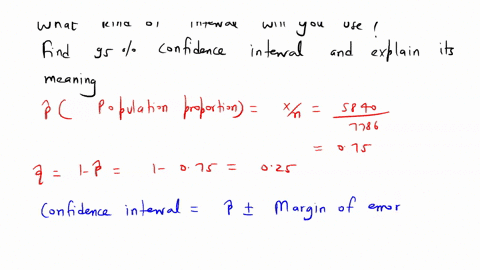 What kind of interval will you use?
Find 95% confidence interval and explain its
meaning
p̂ ( Population proportion) = x/n = 5840/7786
= 0.75
q̂ = 1-p̂ = 1- 0.75 = 0.25
Confidence interval = p̂ ± Margin of error